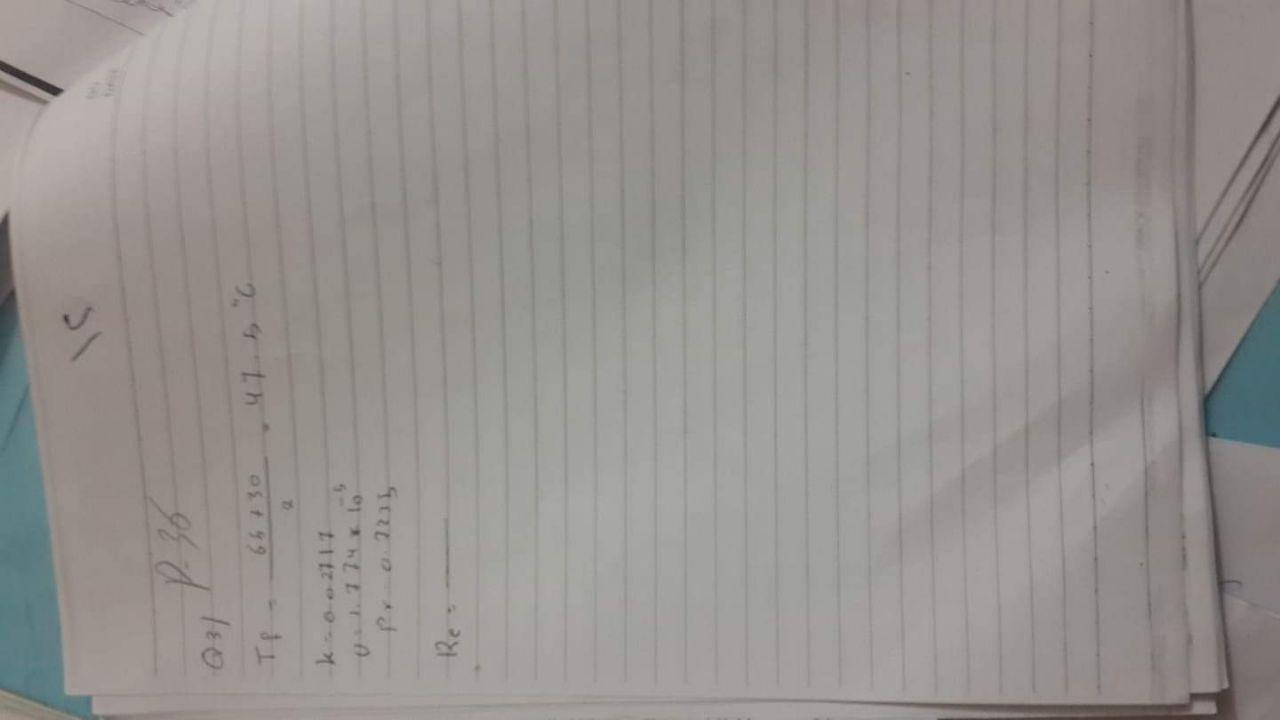 15
P-36
Q3/
Tf = 65+30 / 2 = 47.5 °C
k = 0.02717
υ = 1.774 x 10^-5
Pr = 0.7235
Re =